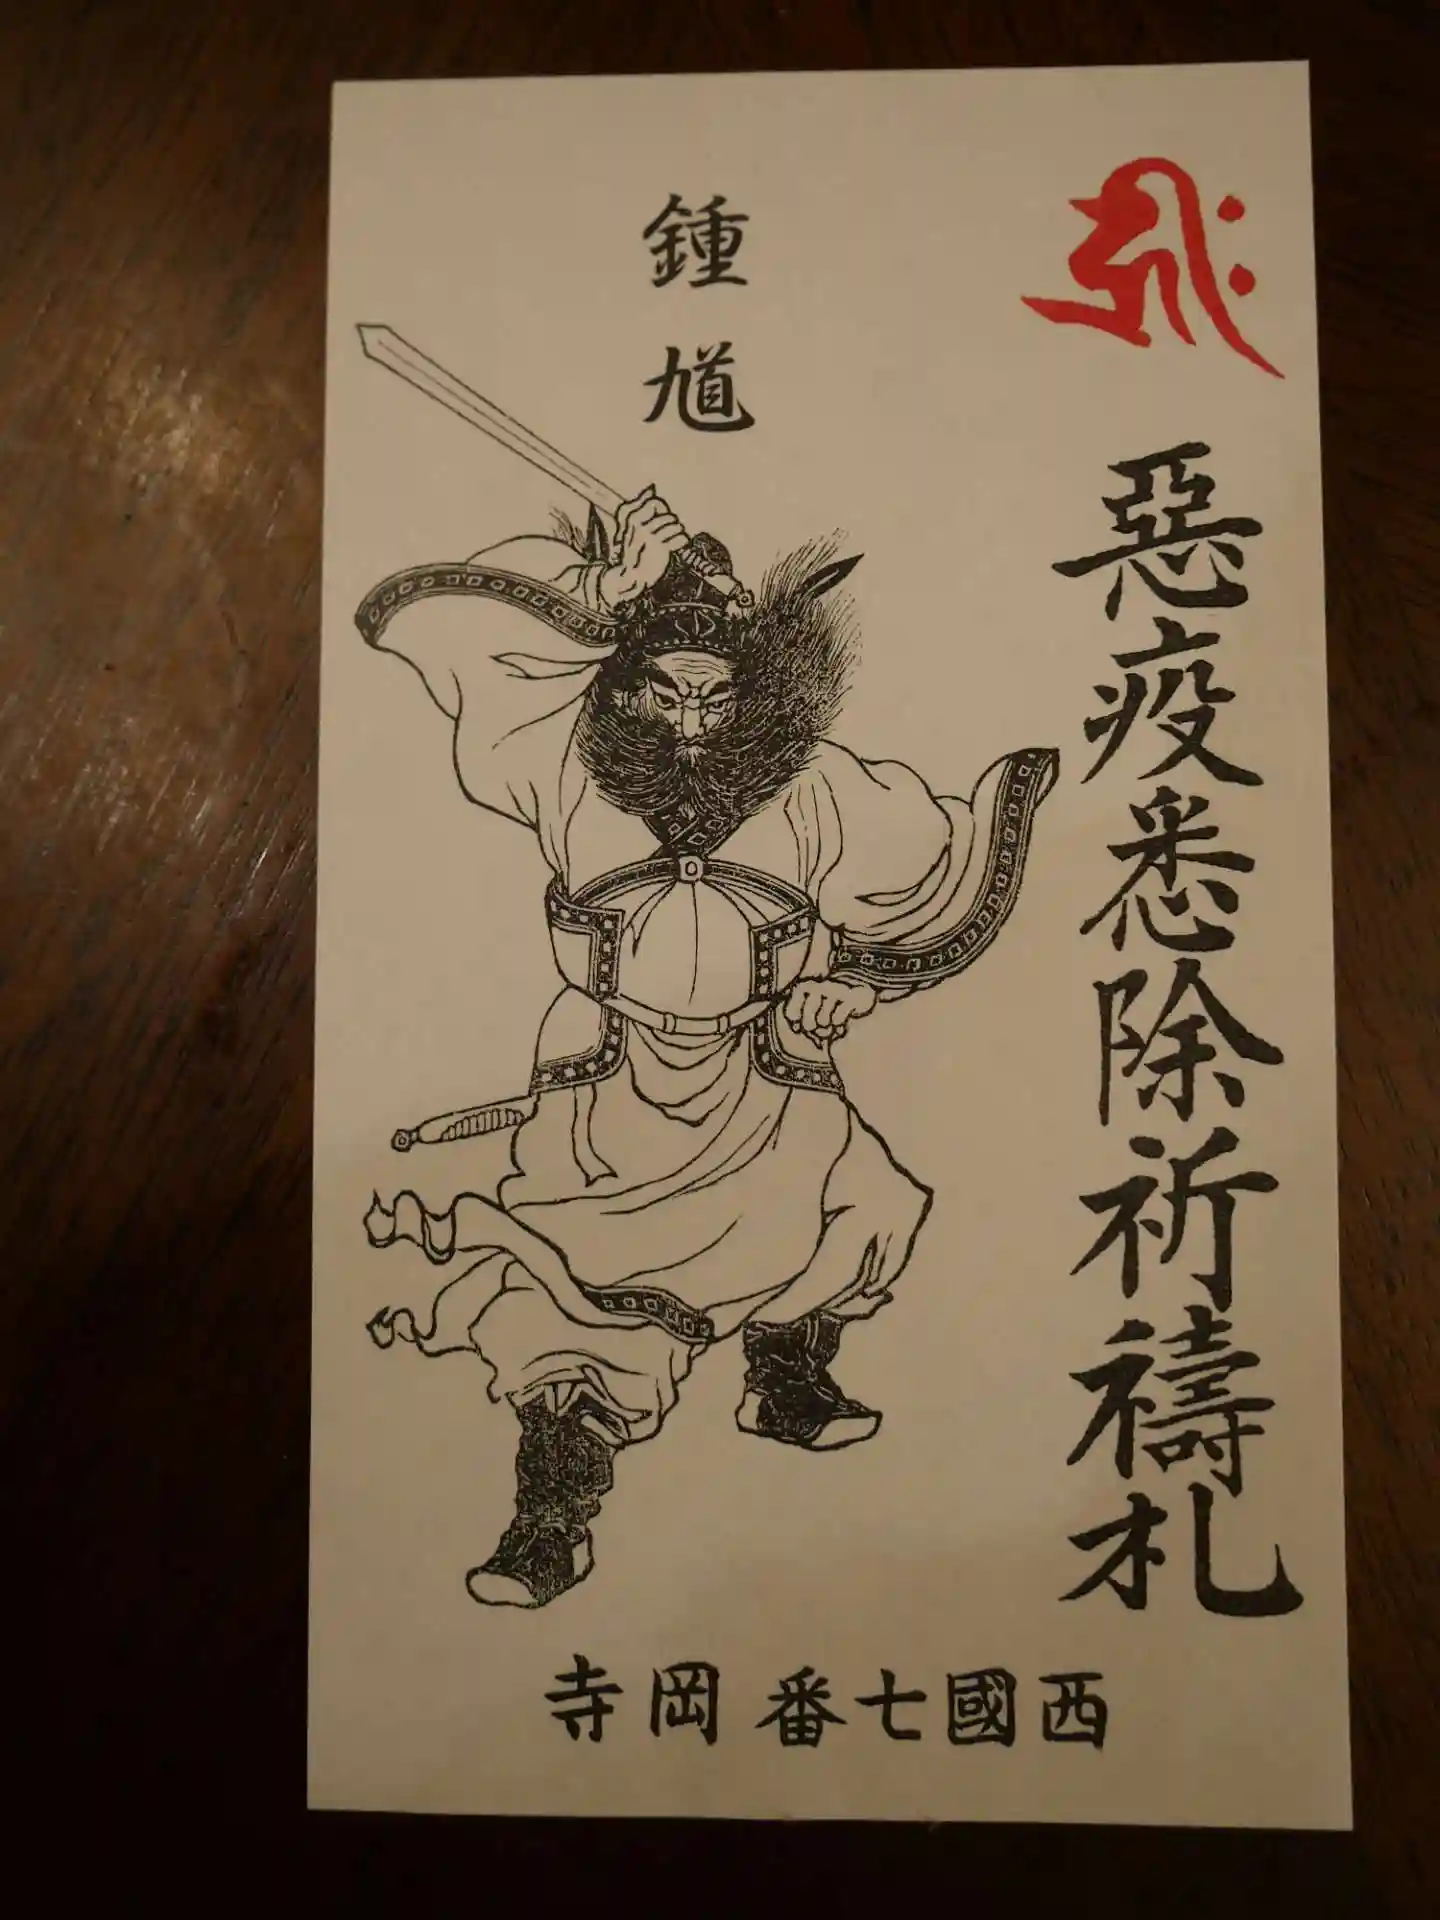 𑖮𑖿𑖨𑖱𑖾
惡疫悉除祈禱札
鍾馗
西國七番岡寺